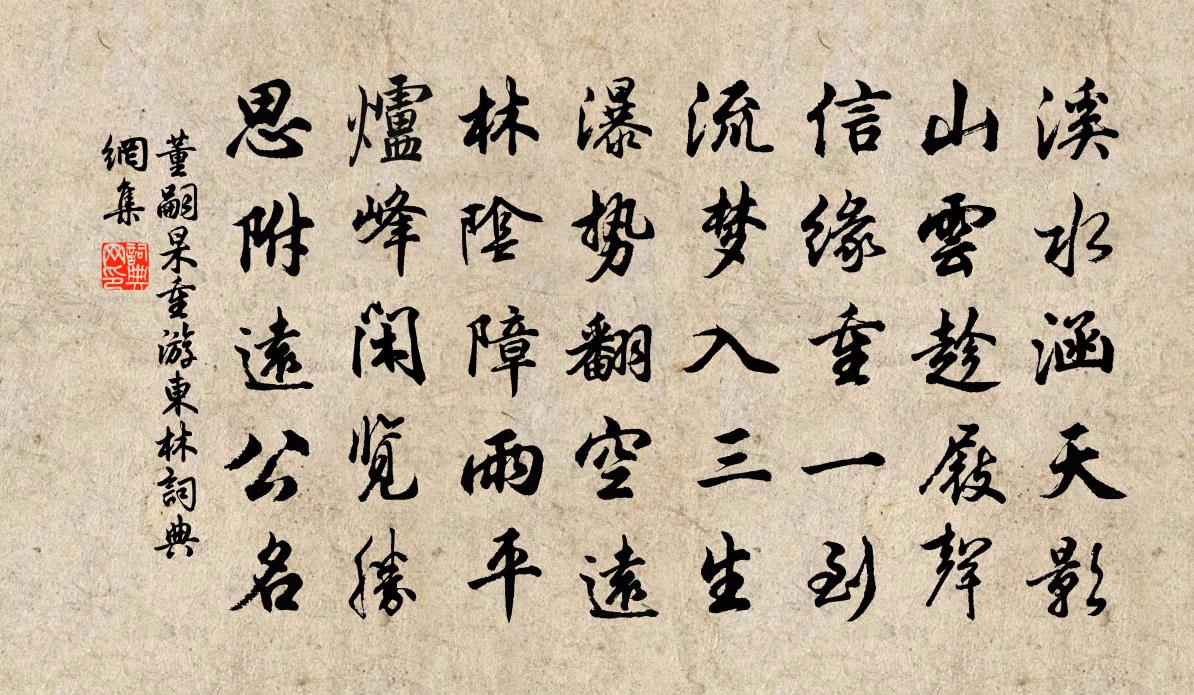 溪水涵天影
山雲趁屐聲
信緣重一到
流梦入三生
瀑势翻空遠
林陰障雨平
爐峰閑覽勝
思附遠公名
董嗣杲重游東林詞典
網集
詞典
网印